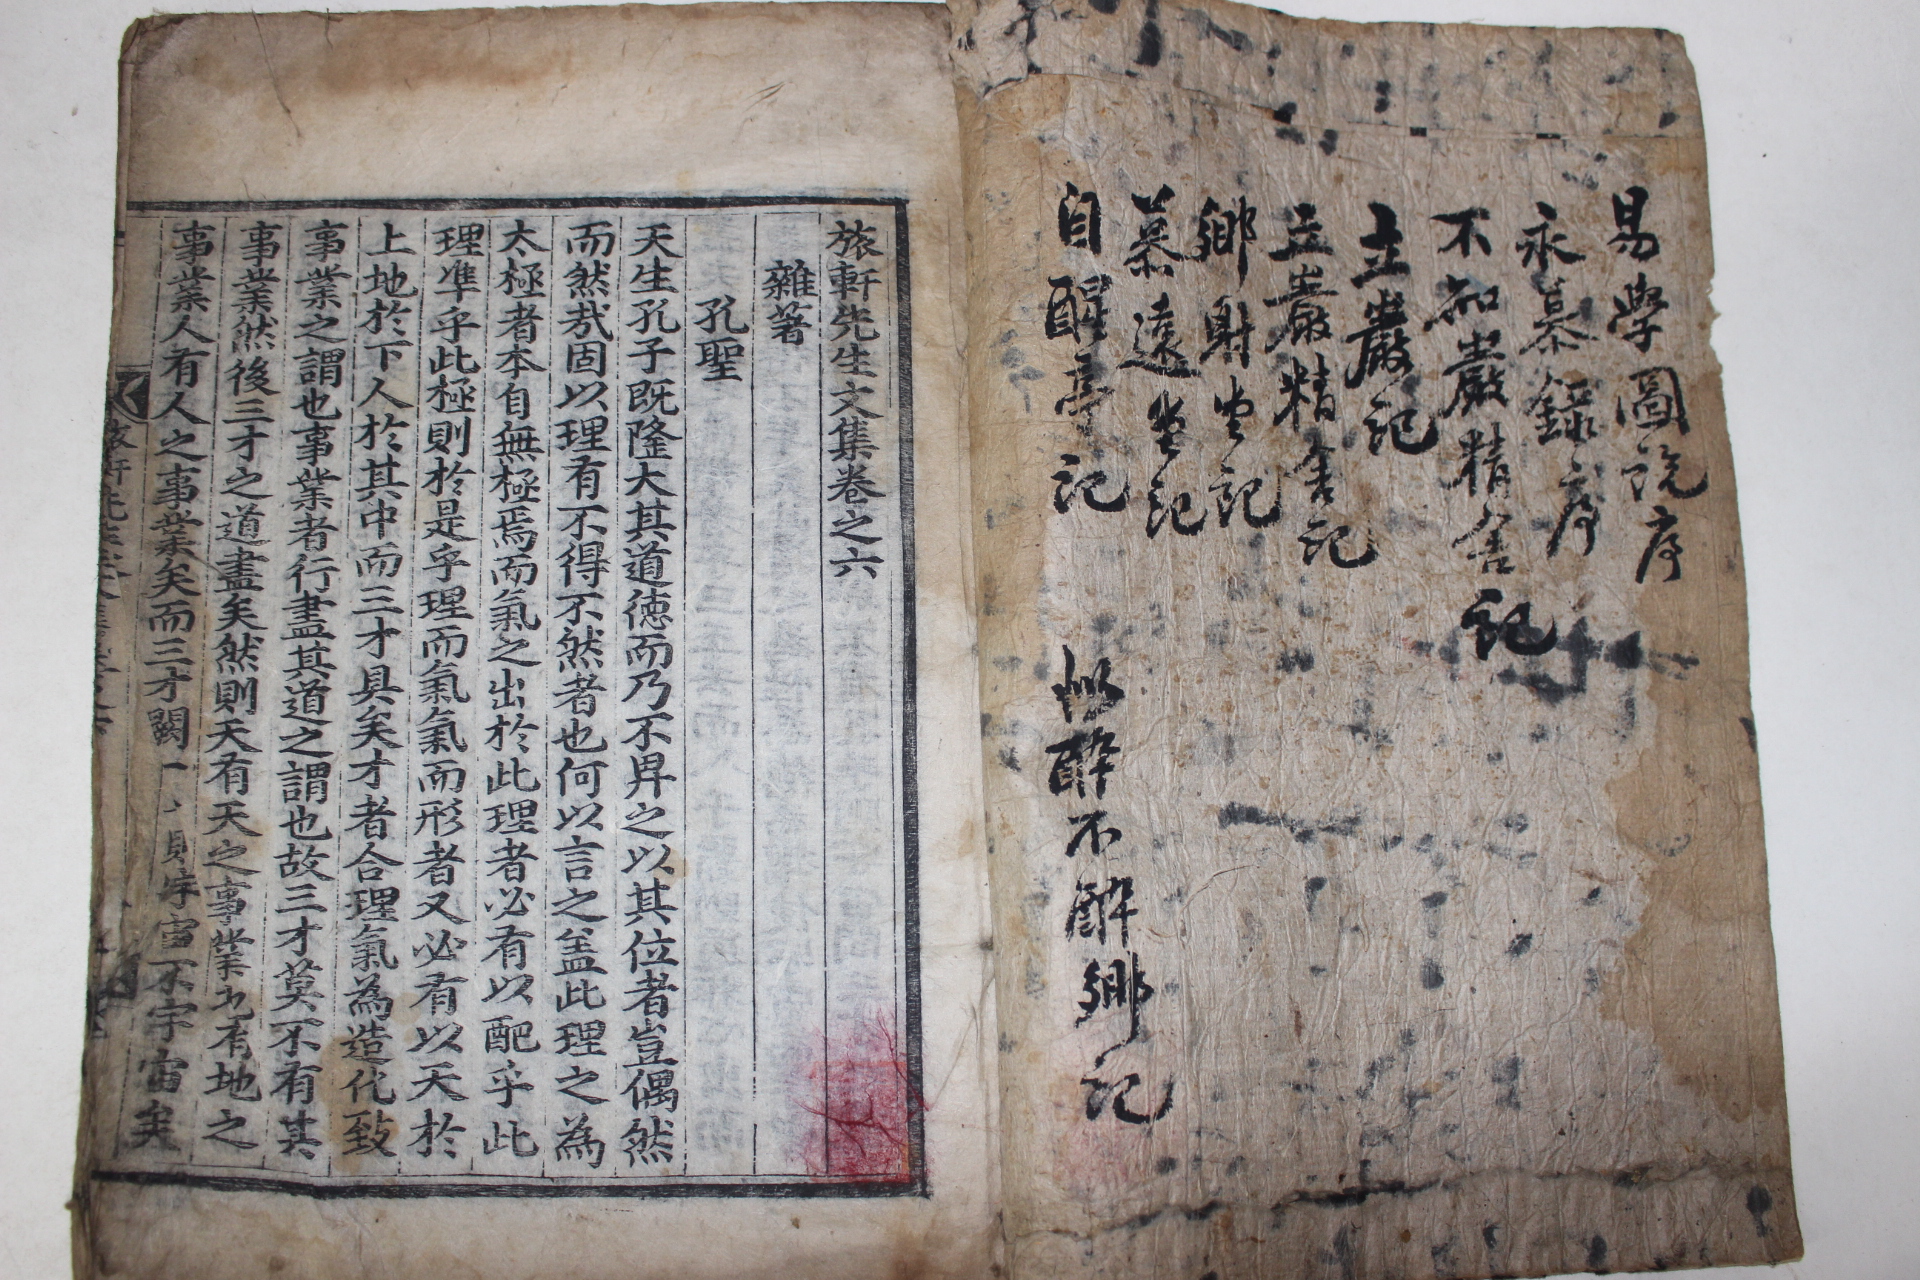 易學圖說序
永慕錄序
不知巖精舍記
立巖記
立巖精舍記
鄉射堂記
慕遠堂記
自醒亭記 似醉不醉鄉記
旅軒先生文集卷之六
雜著
孔聖
天生孔子旣隆大其道德而乃不畀之以其位者豈偶然
而然哉固以理有不得不然者也何以言之盖此理之為
太極者本自無極焉而氣之出於此理者必有以配乎此
理準乎此極則於是乎理而氣氣而形者又必有以天於
上地於下人於其中而三才具矣才者合理氣為造化致
事業之謂也事業者行盡其道之謂也故三才莫不有其
事業然後三才之道盡矣然則天有天之事業也有地之
事業人有人之事業矣而三才闕一 則宇宙不宇宙矣
旅軒先生文集卷之六